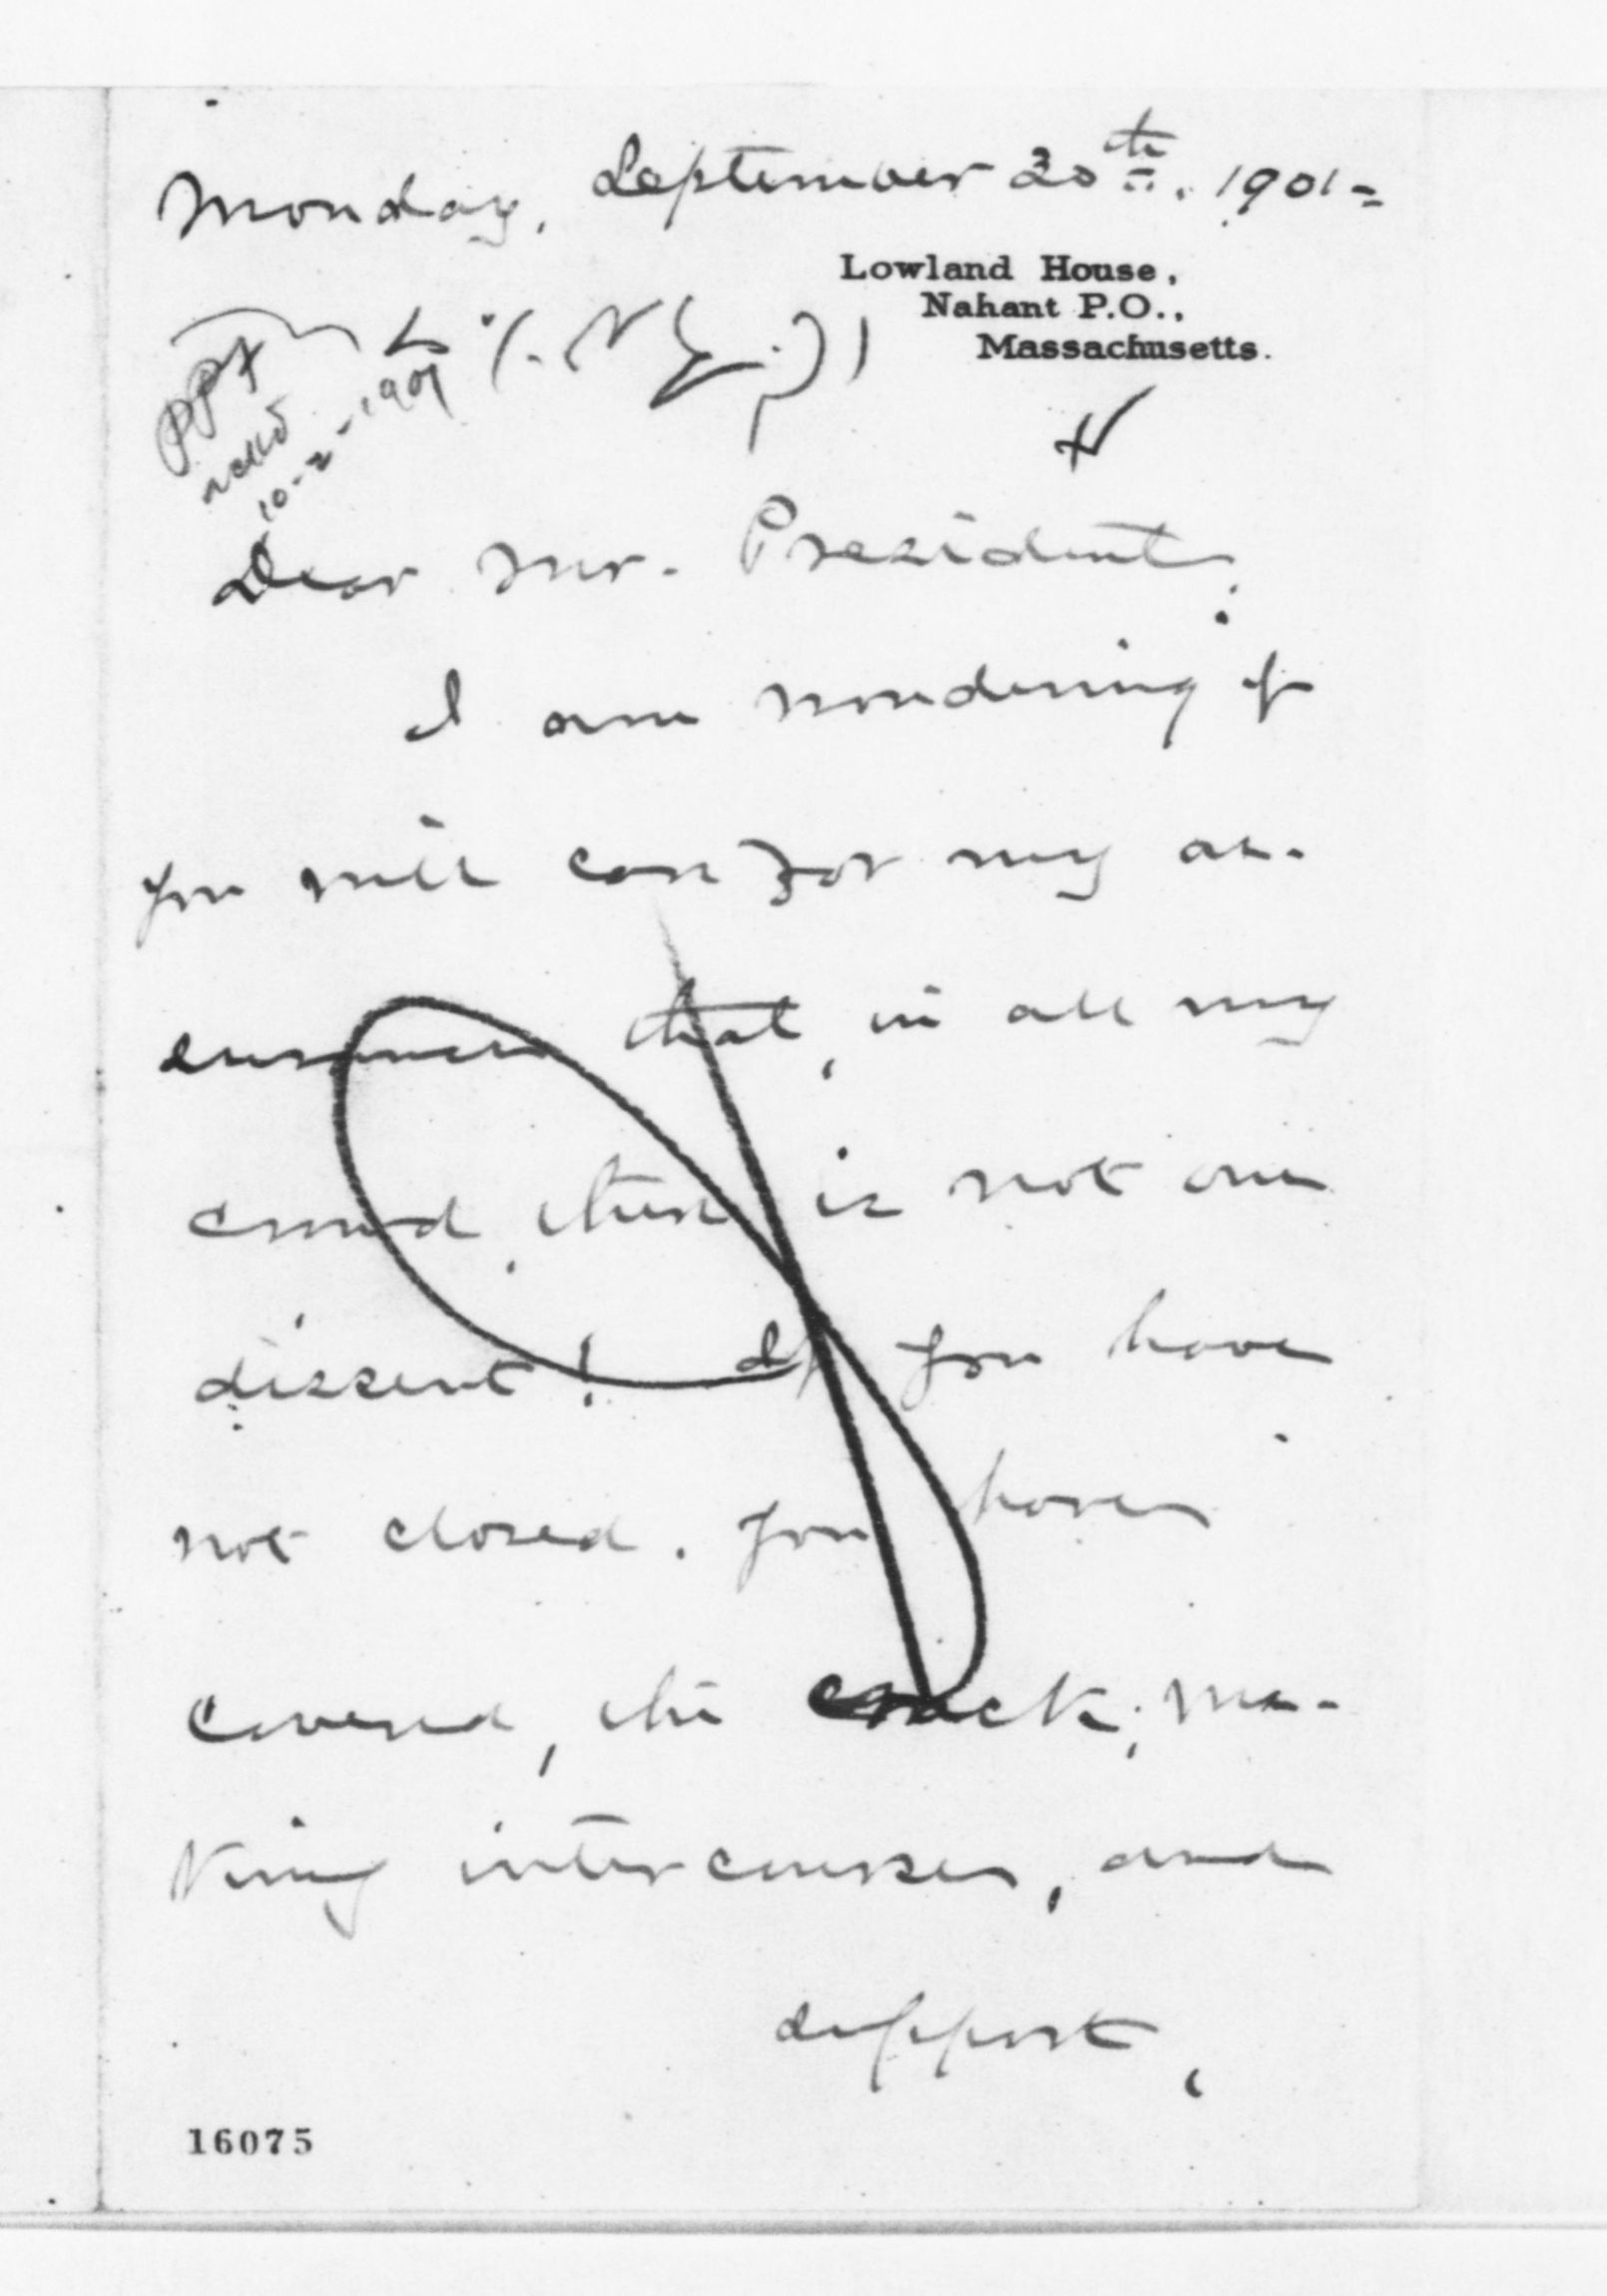 Monday, September 30th. 1901-
Lowland House,
Nahant P.O.,
Massachusetts.
PPF
ackd
10-2-1901
Dear Mr. President:
I am wondering if
you will care for my as-
surances that, in all my
crowd, there is not one
dissent! If you have
not closed, you have
covered, the crack; ma-
king intercourse, and
support,
16075